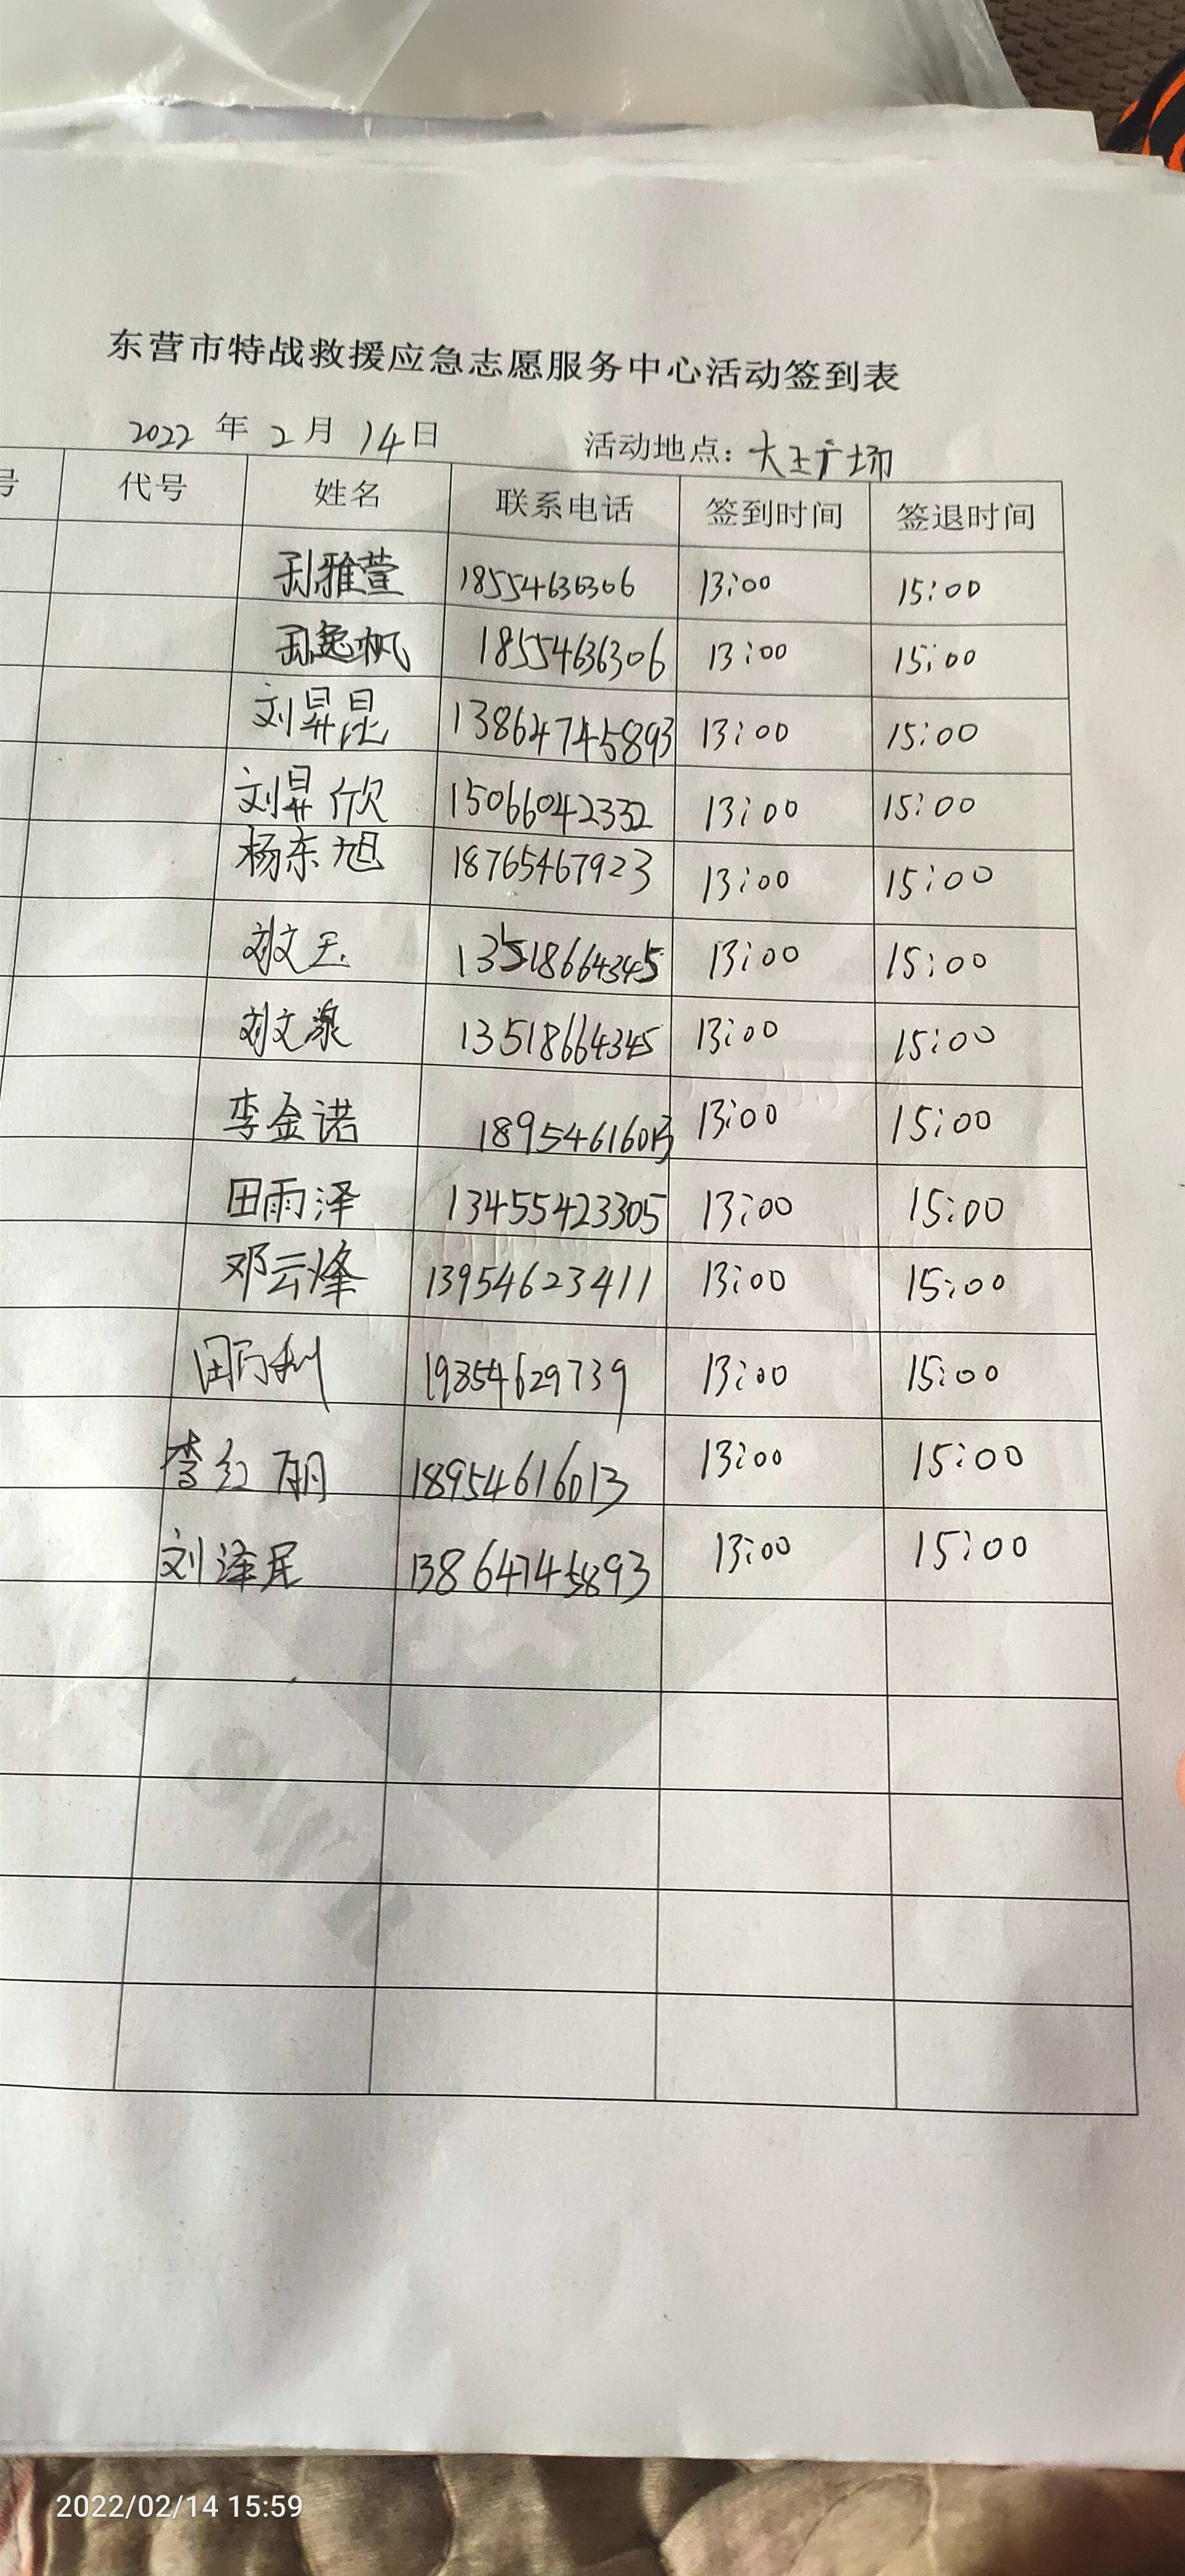 东营市特战救援应急志愿服务中心活动签到表
2022 年 2 月 14 日 活动地点：大王广场
号 代号 姓名 联系电话 签到时间 签退时间
孙雅萱 18554636306 13:00 15:00
孙逸帆 18554636306 13:00 15:00
刘昇昆 13864745893 13:00 15:00
刘昇欣 15066042332 13:00 15:00
杨东旭 18765467923 13:00 15:00
刘文玉 13518664345 13:00 15:00
刘文灏 13518664345 13:00 15:00
李金诺 18954616013 13:00 15:00
田雨泽 13455423305 13:00 15:00
邓云烽 13954623411 13:00 15:00
田万利 19854629739 13:00 15:00
李红丽 18954616013 13:00 15:00
刘泽民 13864745893 13:00 15:00
SWR
2022/02/14 15:59